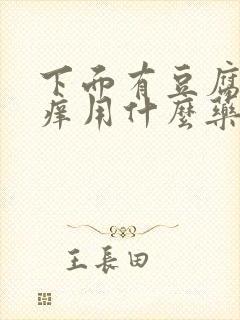 下面有豆腐
痒用什麼藥
王長田